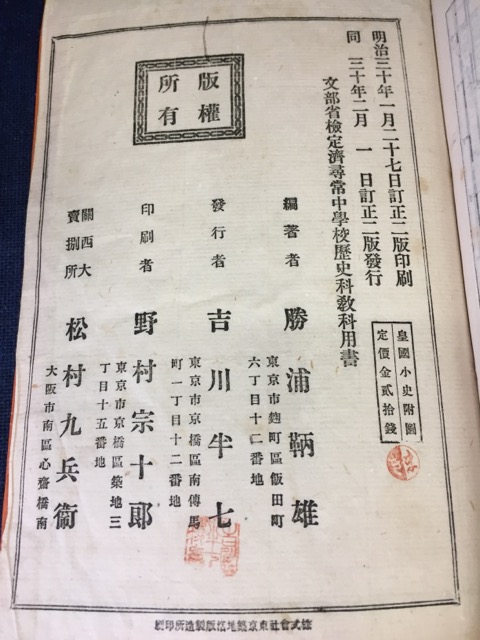 明治三十年一月二十七日訂正二版印刷
同 三十年二月 一 日訂正二版發行
文部省檢定濟尋常中學校歷史科敎科用書
皇國小史附圖
定價金貳拾錢
版權
所有
編著者 勝浦鞆雄
東京市麴町區飯田町
六丁目十二番地
發行者 吉川半七
東京市京橋區南傳馬
町一丁目十二番地
印刷者 野村宗十郎
東京市京橋區築地三
丁目十五番地
關西大
賣捌所
松村九兵衞
大阪市南區心齋橋南
株式會社東京築地活版製造所印刷